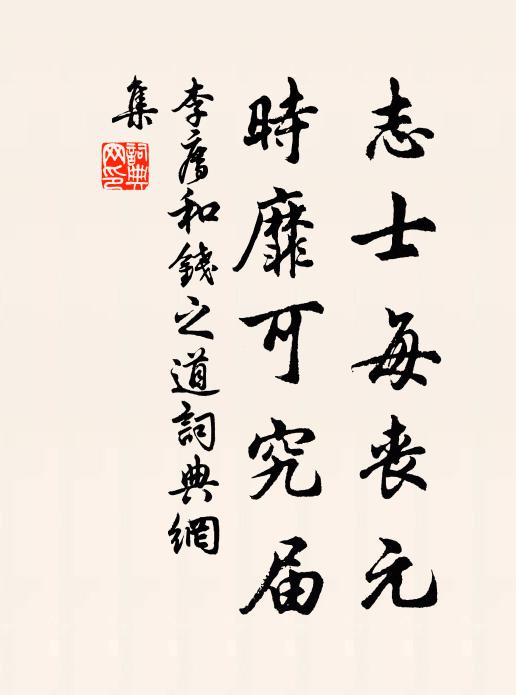 志士每丧元
時靡可究届
李廌和錢之道詞典網
集
詞典网印